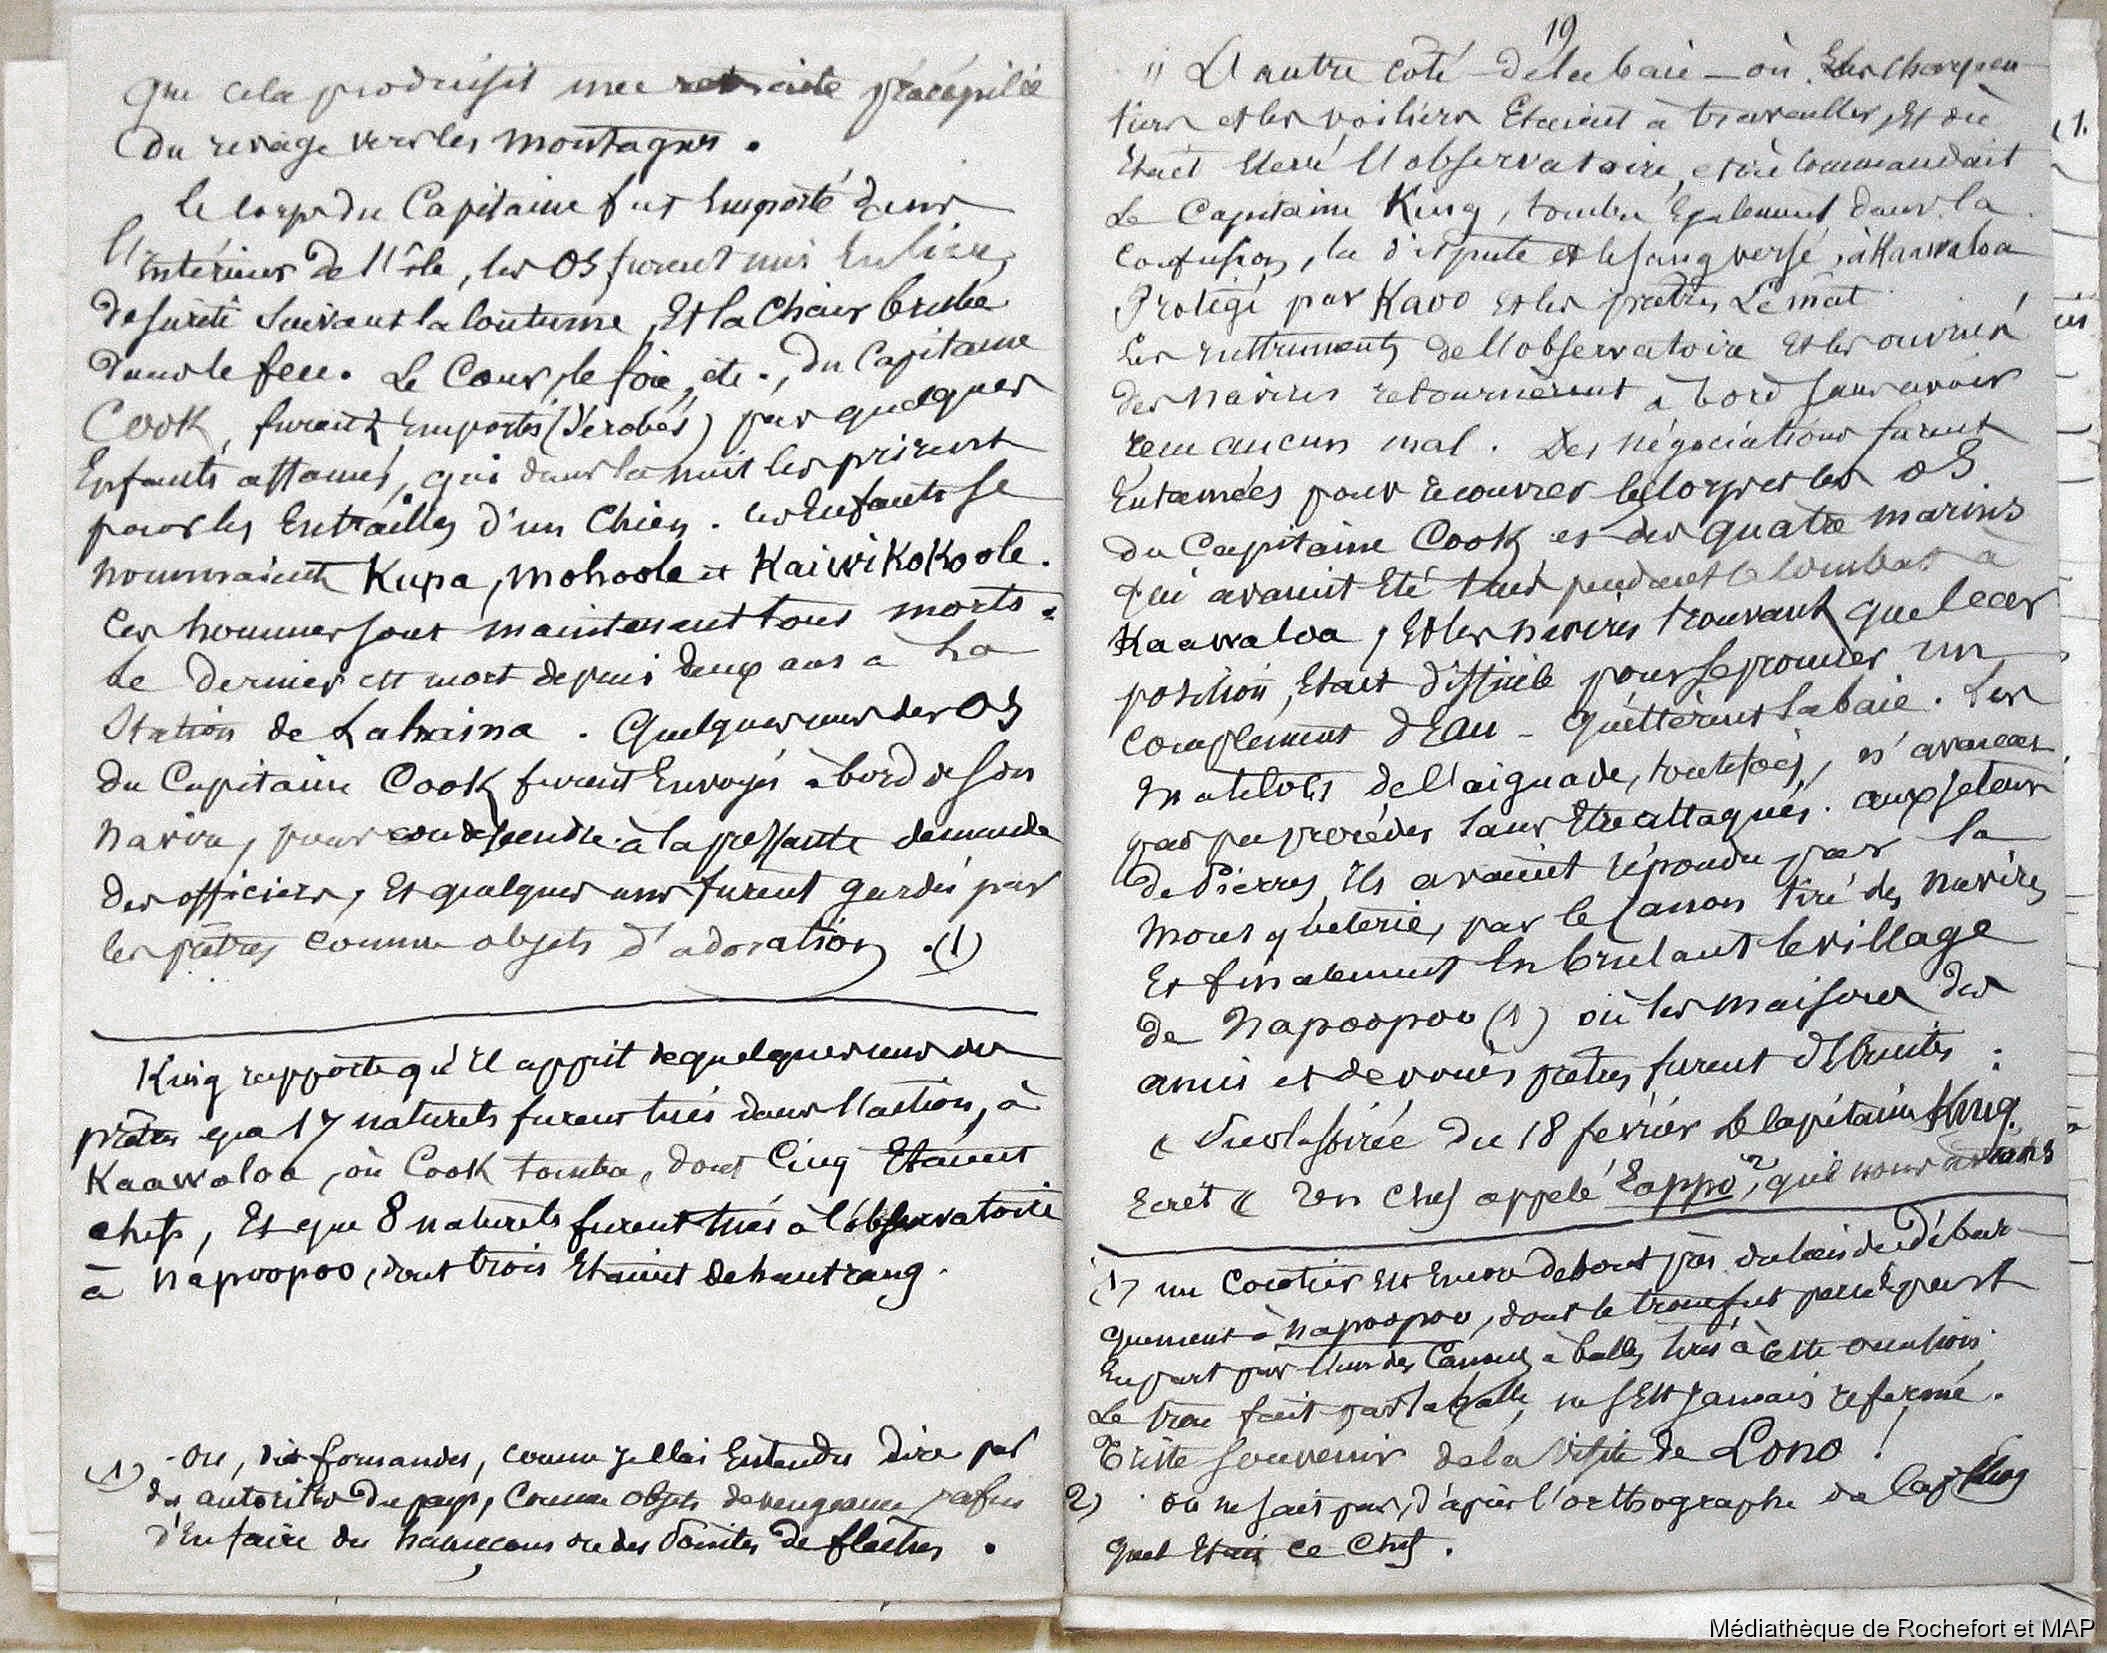 que cela produisit une retraite précipitée
du rivage vers les montagnes.
le corps du Capitaine fut Emporté dans
l'intérieur de l'île, les os furent mis En lieu
de sureté suivant la coutume, Et la chair brulée
dans le feu. Le Cœur, le foie, etc., du Capitaine
Cook, furent Emportés (Dérobés) par quelques
Enfants affamés, qui dans la nuit les prirent
pour les Entrailles d'un chien. Ces Enfants se
nommaient Kupa, Mohoole et Kaiwikokoole.
Ces hommes sont maintenant tous morts.
Le dernier est mort depuis deux ans à La
Station de Lahaina. Quelques uns des os
du Capitaine Cook furent Envoyés à bord de son
navire, pour condescendre à la pressante demande
des officiers, Et quelques uns furent gardés par
les prêtres comme objets d'adoration. (1)
King rapporte qu'il apprit de quelques uns des
prêtres que 17 naturels furent tués dans l'action, à
Kaawaloa, où Cook tomba, dont Cinq Etaient
chefs, Et que 8 naturels furent tués à l'observatoire
à Napoopoo, dont trois Etaient de haut rang.
(1) Ou, dis Fornander, comme je l'ai Entendu dire par
des autorités du pays, Comme objets de vengeance, afin
d'En faire des hameçons ou des Pointes de flèches.
19
" De l'autre côté de la baie où les charpen
tiers et les voiliers Etaient à travailler, Et où
Etait Elevé l'observatoire, et où commandait
Le Capitaine King, tomba Egalement dans la
confusion, la dispute et le sang versé, à Kaawaloa
Protégé par Kaoo et les prêtres, Le mât
Les instruments de l'observatoire Et les ouvriers
des navires retournèrent à bord sans avoir
reçu aucun mal. Des négociations furent
Entamées pour recouvrer le corps et les os
du Capitaine Cook et des quatre marins
qui avaient Eté tués pendant le combat à
Kaawaloa, Et les navires trouvant que leur
position, Etait difficile pour se procurer un
complément d'Eau - quittèrent la baie. Les
matelots de l'aiguade, toutefois, n'avaient
pas pu procéder sans Etre attaqués. aux jeteurs
de Pierres, Ils avaient répondu par la
mousqueterie, par le canon tiré des navires
Et finalement En brulant le village
de Napoopoo (1) où les maisons des
amis et dévoués prêtres furent détruites.
« Dans la soirée du 18 février le Capitaine King
Ecrit « Un chef appelé Eappo, 2) qui nous
(1) un cocotier Est Encore debout près du lieu du débar
quement à Napoopoo, dont le tronc fut percé de part
En part par l'un des Canons à balles tirés à cette occasion.
Le trou fait par la balle, ne s'Est jamais refermé.
Triste souvenir de la visite de Lono !
2) on ne sait pas, d'après l'orthographe de Cap. King
quel Etait ce Chef.
Médiathèque de Rochefort et MAP